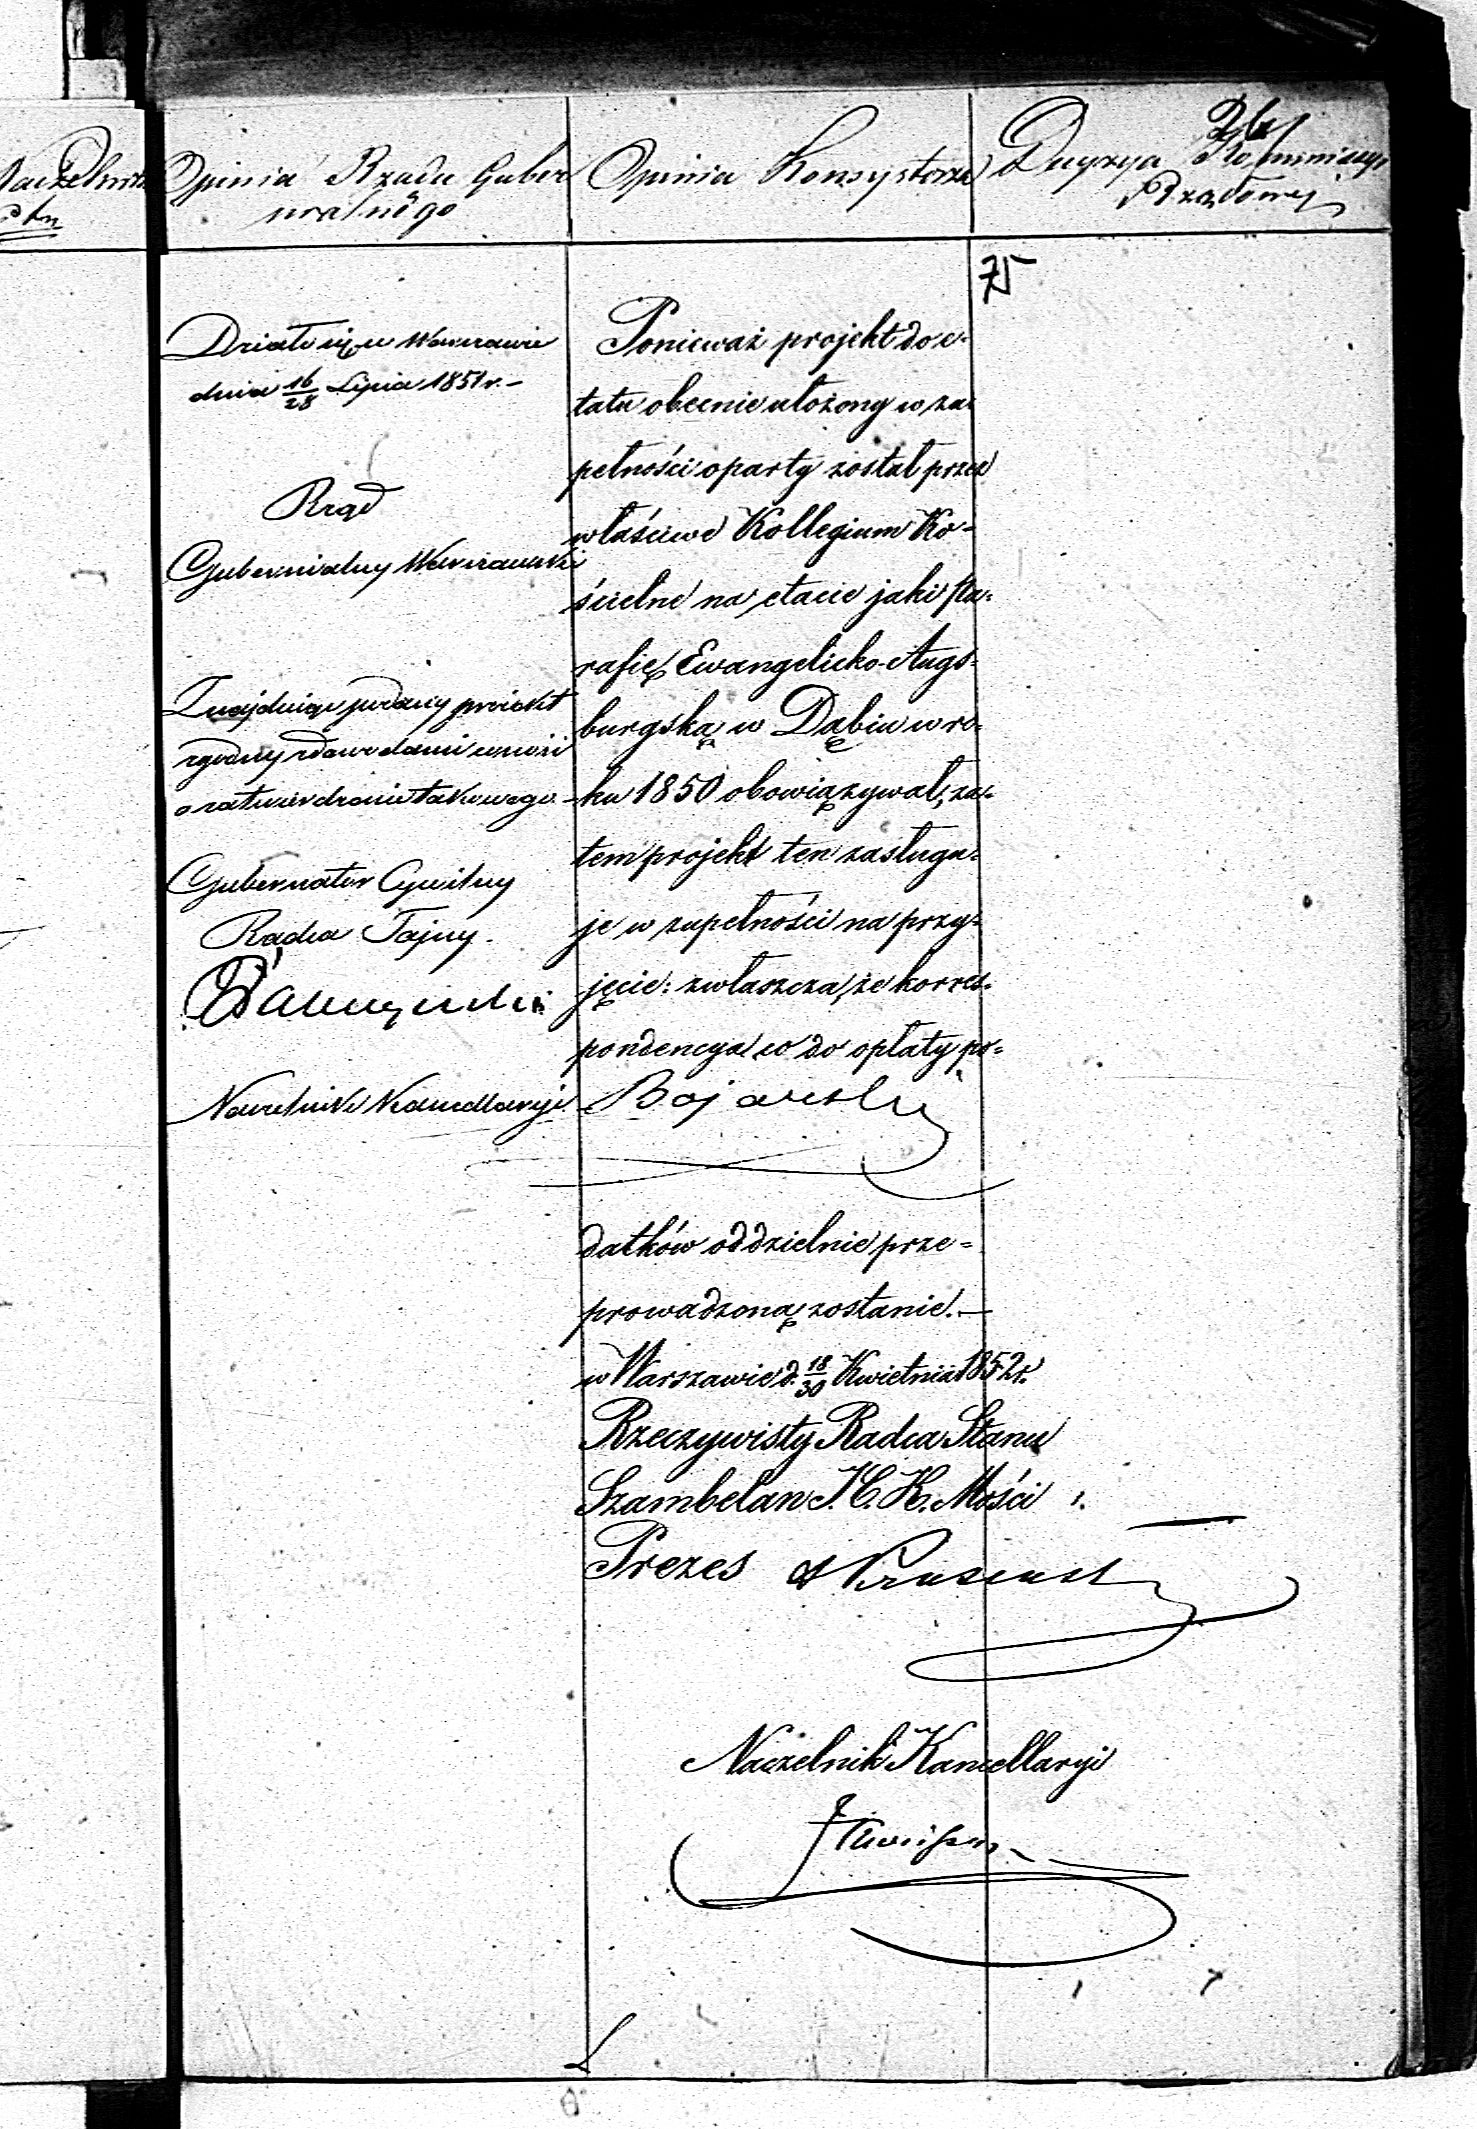 Opinia Rządu Guber
nialnégo
Opinia Konsystorza
Decyzya Kommissyi
Rządowej
75
Działo się w Warszawie
dnia 16/28 Lipca 1851 r. –
Rząd
Gubernialny Warszawski
Znajdując podany projekt
zgodny z dowodami wnosi
o zatwierdzenie takowego. –
Gubernator Cywilny
Radca Tajny.
Naczelnik Kancellaryi
Ponieważ projekt do e-
tatu obecnie ułożony w zu-
pełności oparty został przez
właściwe Kollegium Ko-
ścielne na etacie jaki Pa-
rafię Ewangelicko-Augs-
burgską w Dąbiu w ro-
ku 1850 obowiązywał, za-
tem projekt ten zasługu-
je w zupełności na przy-
jęcie: zwłaszcza, że korres-
pondencya co do opłaty po-
datków oddzielnie prze-
prowadzoną zostanie. –
w Warszawie d. 18/30 Kwietnia 1852 r.
Rzeczywisty Radca Stanu
Szambelan J. C. K. Mości
Prezes
Naczelnik Kancellaryi